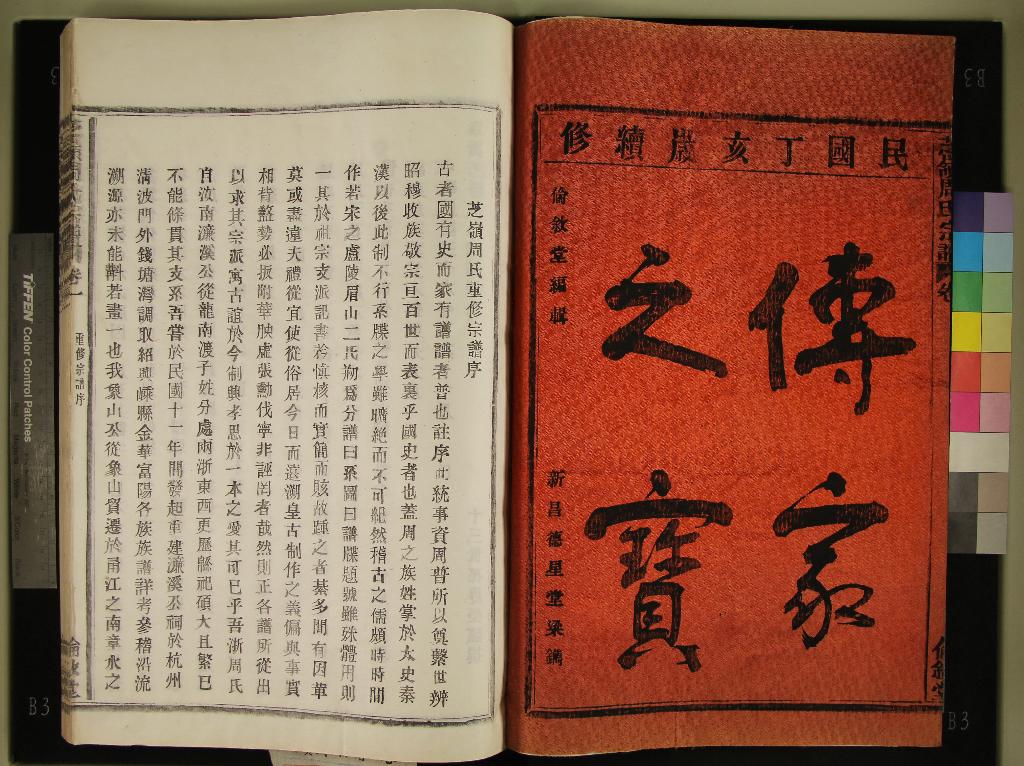 民國丁亥歲續修
傳家
之寶
倫敘堂編輯
新昌德星堂梁鐫
芝嶺周氏重修宗譜序
古者國有史而家有譜譜者普也註序世統事資周普所以奠繫世辨
昭穆收族敬宗亘百世而表裏乎國史者也蓋周之族姓掌於太史秦
漢以後此制不行系牒之學雖曠絶而不可紀然稽古之儒頗時時間
作若宋之廬陵眉山二氏刱爲分譜曰系圖曰譜牒題號雖殊體用則
一其於祖宗支派記書矜慎核而實簡而賅故踵之者綦多間有因革
莫或盡違夫禮從宜使從俗居今日而遠溯皇古制作之義偏與事實
相背盭勢必扳附華腴虛張勳伐寧非誣罔者哉然則正各譜所從出
以求其宗派寓古誼於今制興孝思於一本之愛其可已乎吾浙周氏
自汝南濂溪公從龍南渡子姓分處兩浙東西更歷緜祀碩大且繁已
不能條貫其支系吾嘗於民國十一年間發起重建濂溪公祠於杭州
清波門外錢塘灣調取紹興嵊縣金華富陽各族族譜詳考參稽沿流
溯源亦未能斠若畫一也我象山公從象山貿遷於甬江之南章水之
卷一
重修宗譜序
TIFFEN Color Control Patches
B3
B3
B3